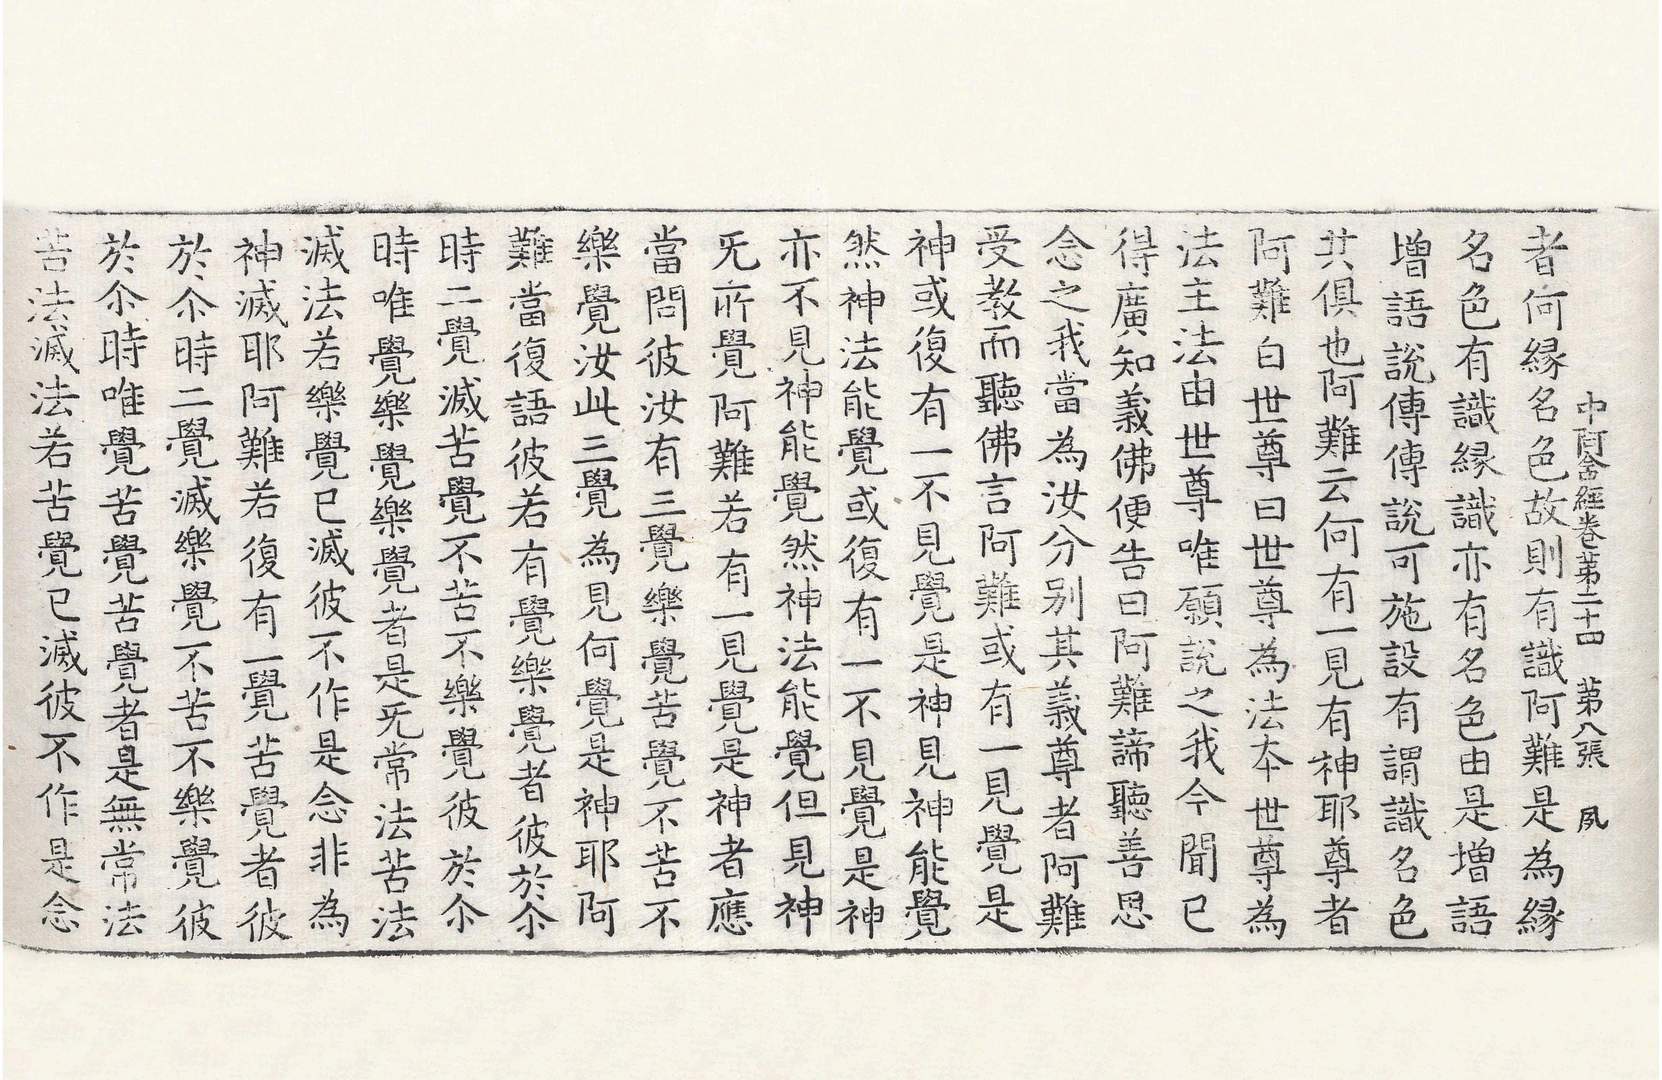 中阿含經卷第二十四 第八張 夙
者何緣名色故則有識阿難是為緣
名色有識緣識亦有名色由是增語
增語說傳傳說可施設有謂識名色
共俱也阿難云何有一見有神耶尊者
阿難白世尊曰世尊為法本世尊為
法主法由世尊唯願說之我今聞已
得廣知義佛便告曰阿難諦聽善思
念之我當為汝分別其義尊者阿難
受教而聽佛言阿難或有一見覺是
神或復有一不見覺是神見神能覺
然神法能覺或復有一不見覺是神
亦不見神能覺然神法能覺但見神
旡所覺阿難若有一見覺是神者應
當問彼汝有三覺樂覺苦覺不苦不
樂覺汝此三覺為見何覺是神耶阿
難當復語彼若有覺樂覺者彼於尒
時二覺滅苦覺不苦不樂覺彼於尒
時唯覺樂覺覺樂覺者是旡常法苦法
滅法若樂覺已滅彼不作是念非為
神滅耶阿難若復有一覺苦覺者彼
於尒時二覺滅樂覺不苦不樂覺彼
於尒時唯覺苦覺苦覺者是無常法
苦法滅法若苦覺已滅彼不作是念